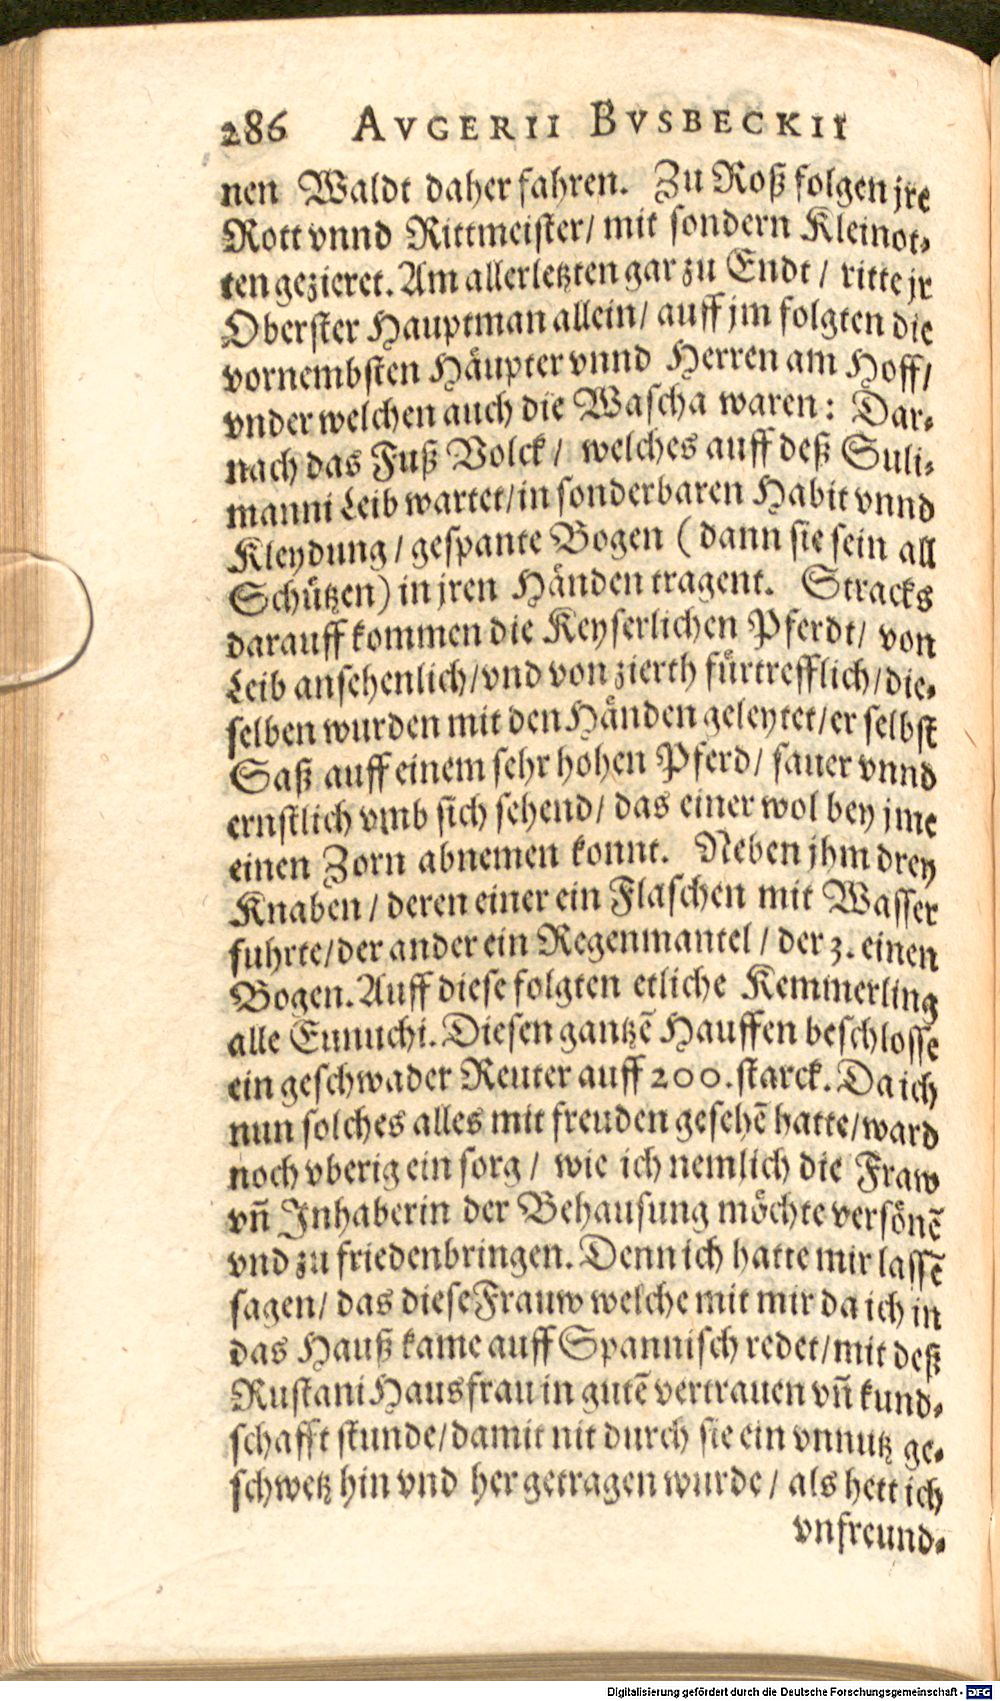 286 AVGERII BVSBECKII
nen Waldt daher fahren. Zu Roß folgen jre
Rott vnnd Rittmeister/ mit sondern Kleinot-
ten gezieret. Am allerletzten gar zu Endt / ritte jr
Oberster Hauptman allein/ auff jm folgten die
vornembsten Häupter vnnd Herren am Hoff/
vnder welchen auch die Wascha waren: Dar-
nach das Fuß Volck / welches auff deß Suli-
manni Leib wartet/in sonderbaren Habit vnnd
Kleydung / gespante Bogen ( dann sie sein all
Schützen) in jren Händen tragent. Stracks
darauff kommen die Keyserlichen Pferdt/ von
Leib ansehenlich/vnd von zierth fürtrefflich/die-
selben wurden mit den Händen geleytet/er selbst
Saß auff einem sehr hohen Pferd/ sauer vnnd
ernstlich vmb sich sehend/ das einer wol bey jme
einen Zorn abnemen konnt. Neben jhm drey
Knaben / deren einer ein Flaschen mit Wasser
fuhrte/der ander ein Regenmantel / der 3. einen
Bogen. Auff diese folgten etliche Kemmerling
alle Eunuchi. Diesen gantzē Hauffen beschlosse
ein geschwader Reuter auff 200. starck. Da ich
nun solches alles mit freuden gesehē hatte/ward
noch vberig ein sorg / wie ich nemlich die Fraw
vn̄ Inhaberin der Behausung möchte versönē
vnd zu friedenbringen. Denn ich hatte mir lassē
sagen/ das diese Frauw welche mit mir da ich in
das Hauß kame auff Spannisch redet/mit deß
Rustani Hausfrau in gutē vertrauen vn̄ kund-
schafft stunde/damit nit durch sie ein vnnutz ge-
schwetz hin vnd her getragen wurde / als hett ich
vnfreund-
Digitalisierung gefördert durch die Deutsche Forschungsgemeinschaft - DFG